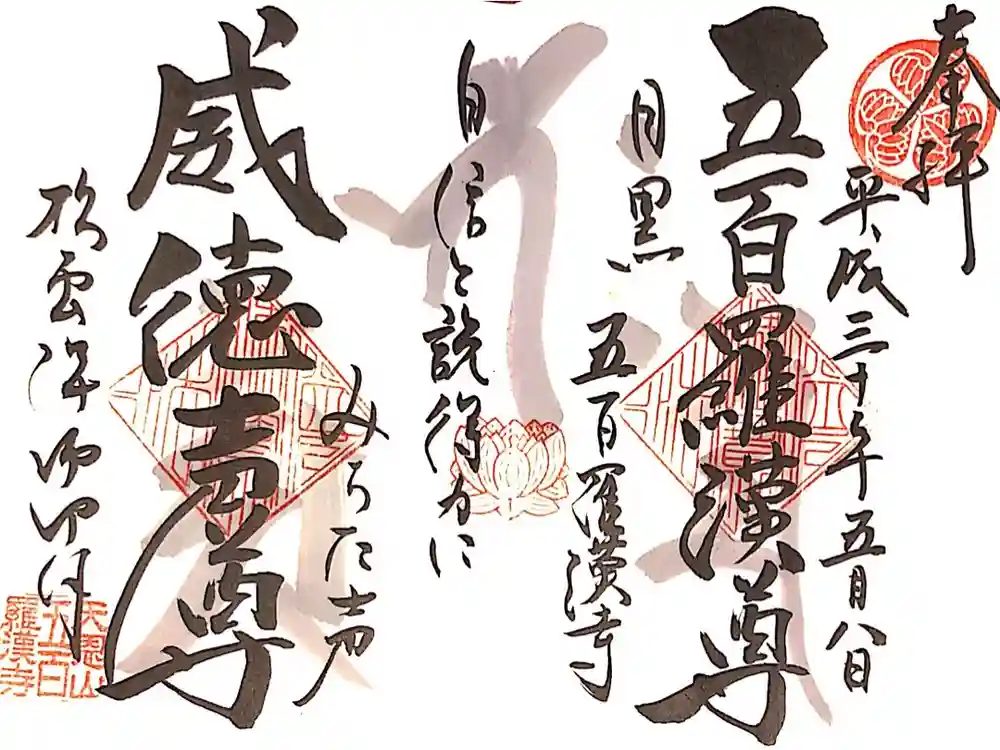 奉拝
平成三十年五月八日
五百羅漢尊
目黒
五百羅漢寺
自信と説得力に
みちた声
威徳声尊
松雲禅師
天恩山
五百
羅漢寺